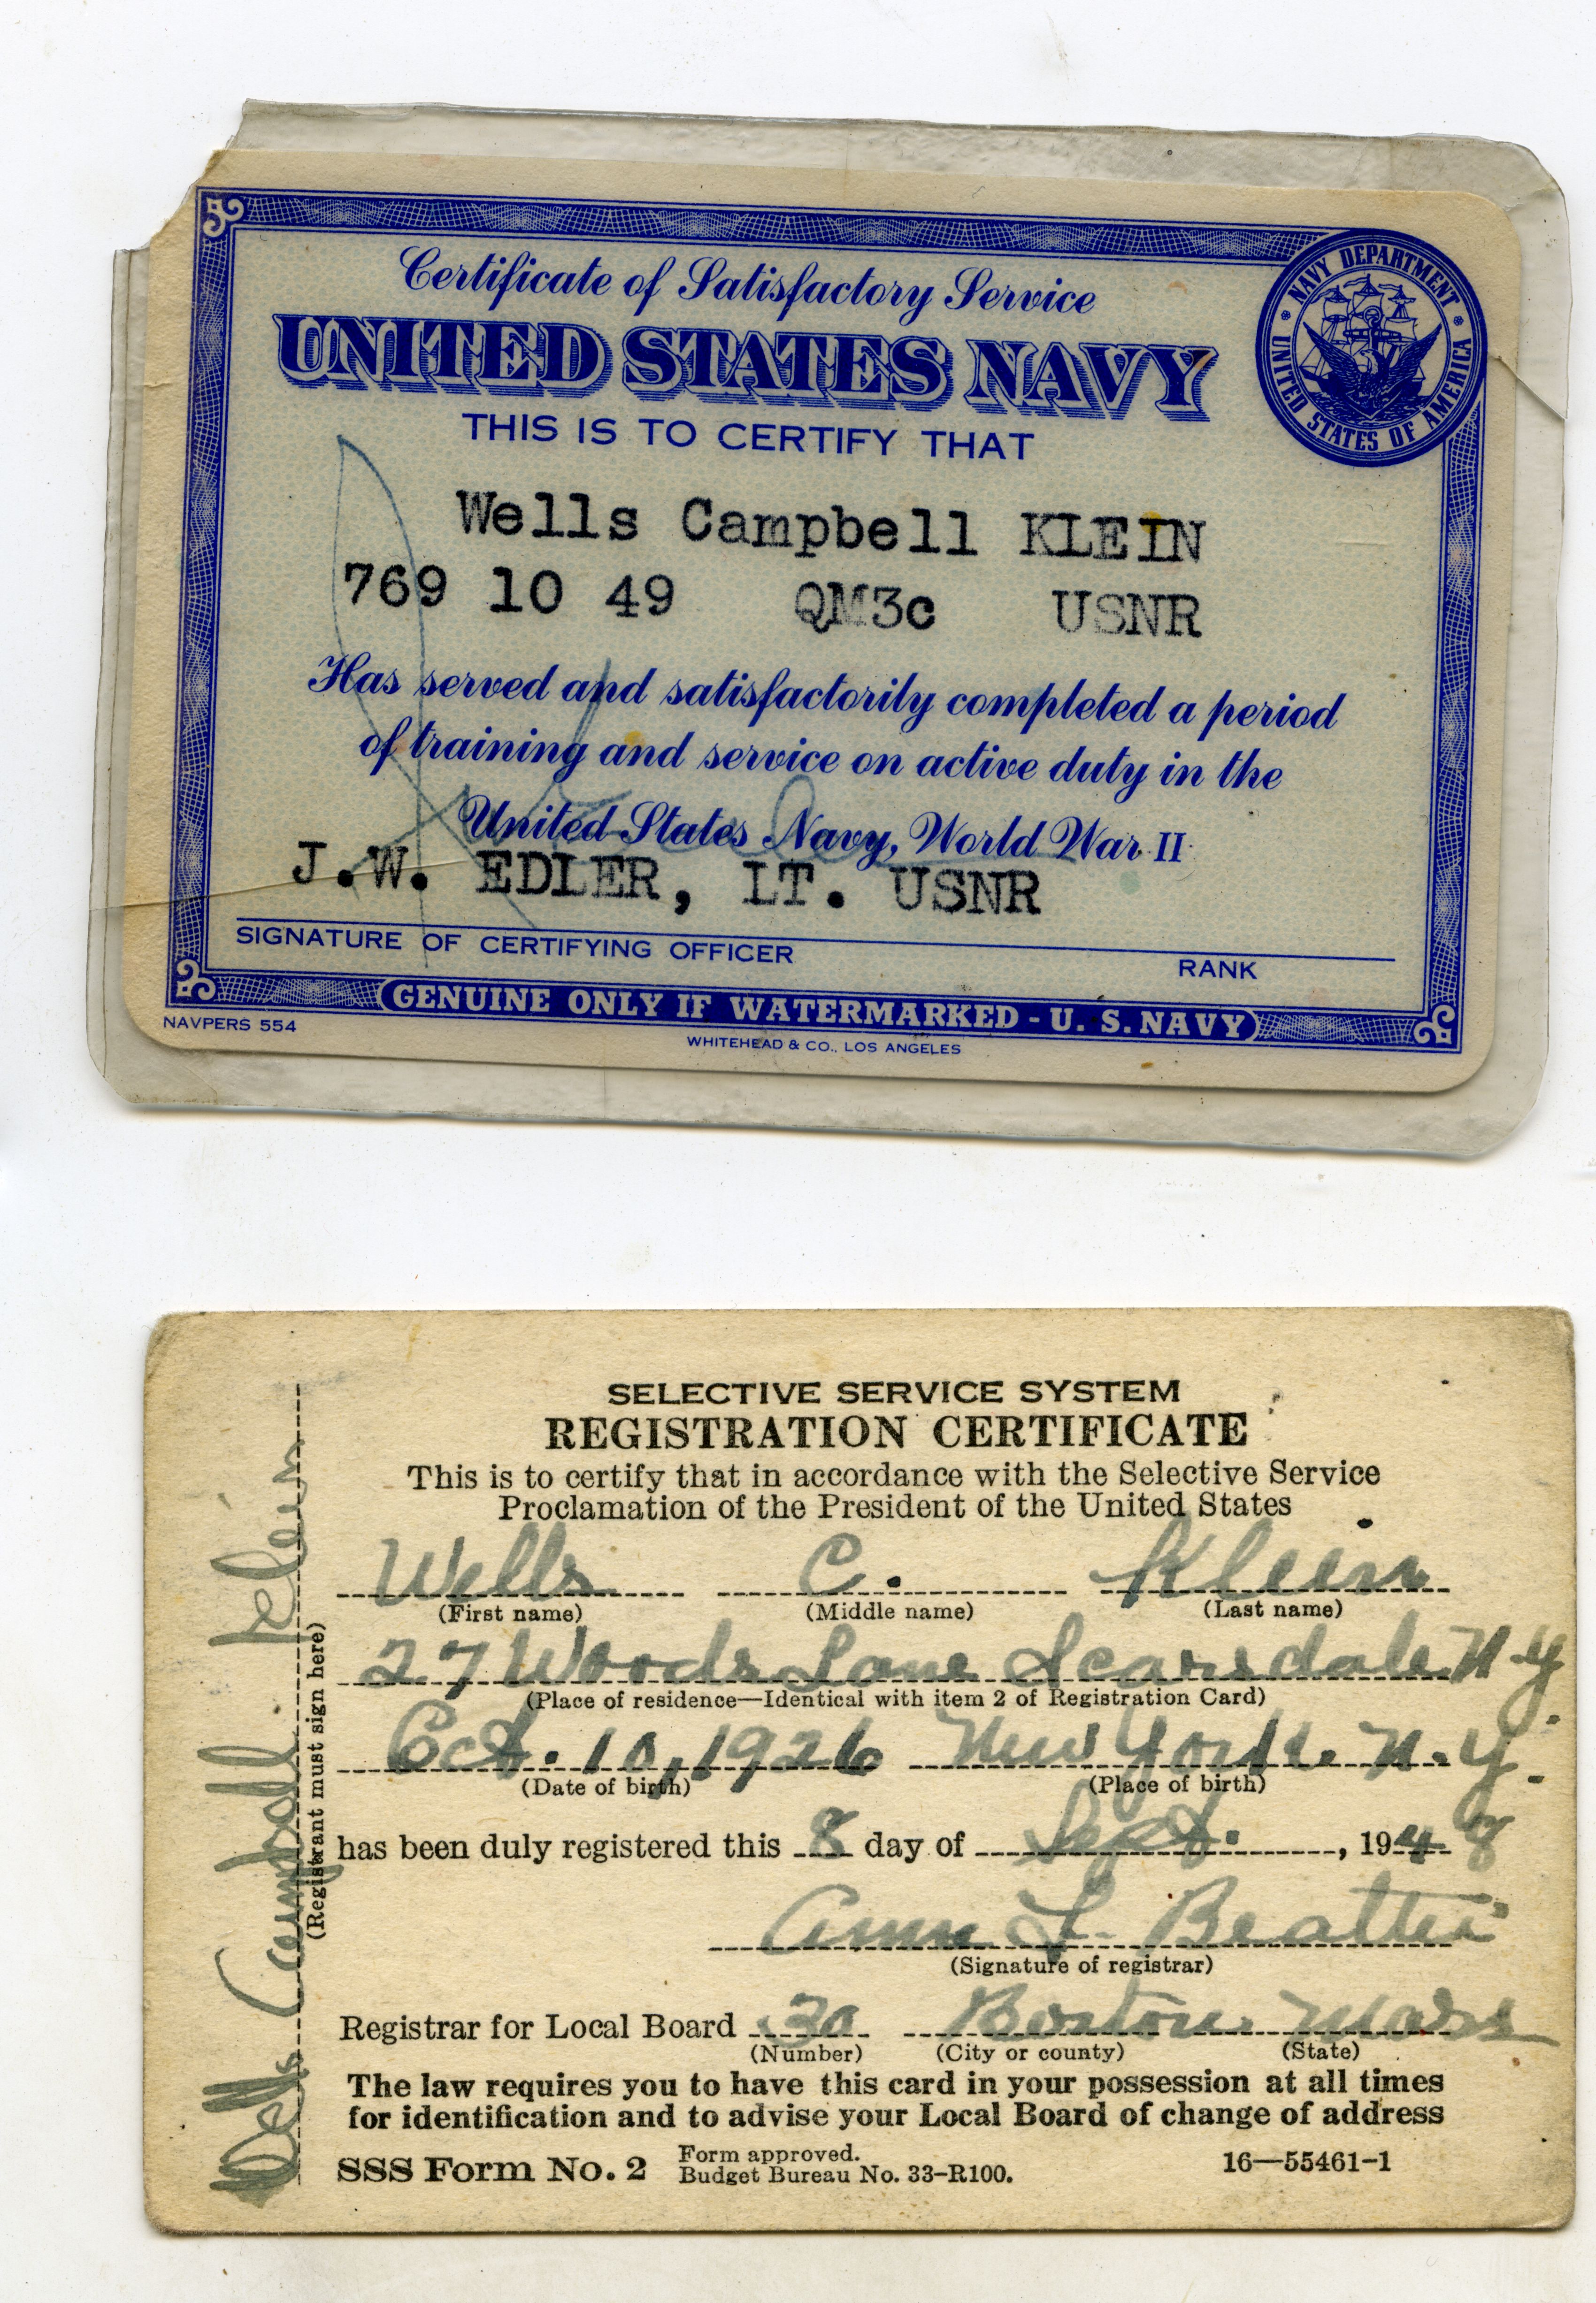 Certificate of Satisfactory Service
UNITED STATES NAVY
NAVY DEPARTMENT
UNITED STATES OF AMERICA
THIS IS TO CERTIFY THAT
Wells Campbell KLEIN
769 10 49 QM3c USNR
Has served and satisfactorily completed a period
of training and service on active duty in the
United States Navy, World War II
J.W. EDLER, LT. USNR
SIGNATURE OF CERTIFYING OFFICER RANK
GENUINE ONLY IF WATERMARKED - U. S. NAVY
NAVPERS 554
WHITEHEAD & CO., LOS ANGELES
SELECTIVE SERVICE SYSTEM
REGISTRATION CERTIFICATE
This is to certify that in accordance with the Selective Service
Proclamation of the President of the United States
Wells C. Klein
(First name) (Middle name) (Last name)
27 Woods Lane Scarsdale N.Y.
(Place of residence—Identical with item 2 of Registration Card)
Oct. 10, 1926 New York. N.Y.
(Date of birth) (Place of birth)
has been duly registered this 8 day of Sept., 1948
Ann L. Beattie
(Signature of registrar)
Registrar for Local Board 30 Boston Mass
(Number) (City or county) (State)
The law requires you to have this card in your possession at all times
for identification and to advise your Local Board of change of address
SSS Form No. 2 Form approved.
Budget Bureau No. 33-R100. 16—55461-1
Wells Campbell Klein
(Registrant must sign here)